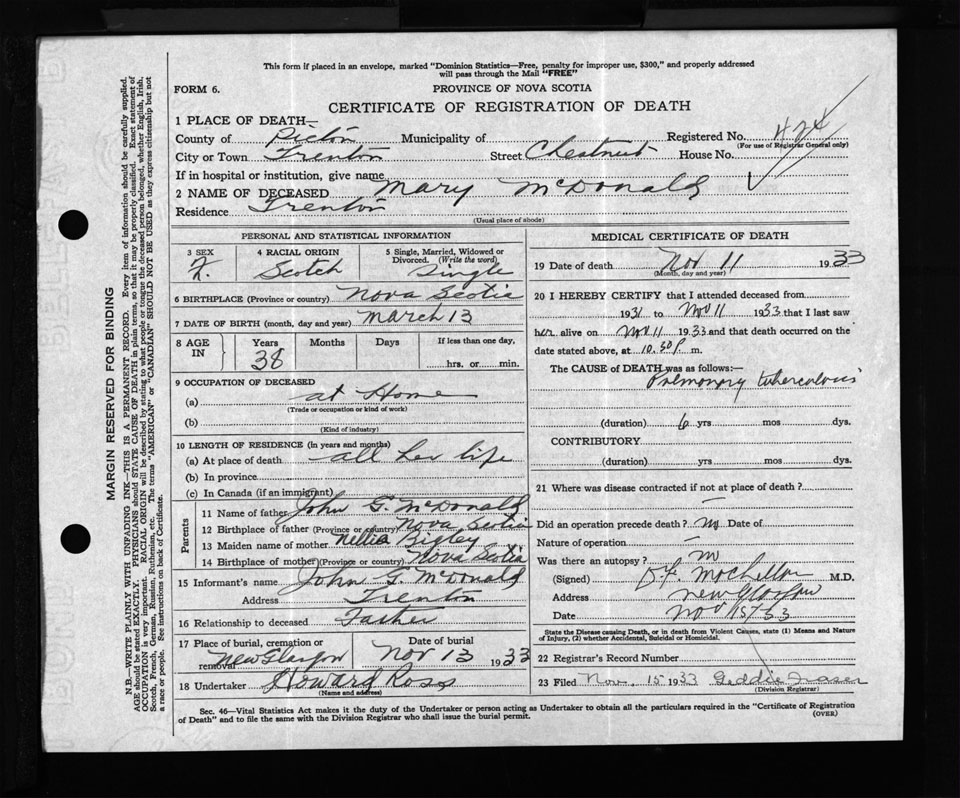 This form if placed in an envelope, marked "Dominion Statistics—Free, penalty for improper use, $300," and properly addressed
will pass through the Mail "FREE"
FORM 6. PROVINCE OF NOVA SCOTIA
CERTIFICATE OF REGISTRATION OF DEATH
1 PLACE OF DEATH—
County of Pictou Municipality of Registered No. 424
(For use of Registrar General only)
City or Town Trenton Street Chestnut House No.
If in hospital or institution, give name
2 NAME OF DECEASED Mary McDonald
Residence Trenton
(Usual place of abode)
PERSONAL AND STATISTICAL INFORMATION
3 SEX 4 RACIAL ORIGIN 5 Single, Married, Widowed or
Divorced. (Write the word)
F. Scotch Single
6 BIRTHPLACE (Province or country) Nova Scotia
7 DATE OF BIRTH (month, day and year) March 13
8 AGE IN Years Months Days If less than one day,
38 hrs. or min.
9 OCCUPATION OF DECEASED
(a) at Home
(Trade or occupation or kind of work)
(b)
(Kind of industry)
10 LENGTH OF RESIDENCE (in years and months)
(a) At place of death all her life
(b) In province
(c) In Canada (if an immigrant)
Parents
11 Name of father John G. McDonald
12 Birthplace of father (Province or country) Nova Scotia
13 Maiden name of mother Nellie Bigley
14 Birthplace of mother (Province or country) Nova Scotia
15 Informant's name John G. McDonald
Address Trenton
16 Relationship to deceased Father
17 Place of burial, cremation or Date of burial
removal New Glasgow Nov 13 1933
18 Undertaker Howard Ross
(Name and address)
MEDICAL CERTIFICATE OF DEATH
19 Date of death Nov 11 1933
(Month, day and year)
20 I HEREBY CERTIFY that I attended deceased from
1931 to Nov 11 1933 that I last saw
her alive on Nov 11 1933 and that death occurred on the
date stated above, at 10.30 P. m.
The CAUSE of DEATH was as follows:—
Pulmonary tuberculosis
(duration) 6 yrs mos dys.
CONTRIBUTORY
(duration) yrs mos dys.
21 Where was disease contracted if not at place of death?
—
Did an operation precede death? no Date of
Nature of operation —
Was there an autopsy? no
(Signed) M.D.
Address New Glasgow
Date Nov 15th 33
State the Disease causing Death, or in death from Violent Causes, state (1) Means and Nature
of Injury, (2) whether Accidental, Suicidal or Homicidal.
22 Registrar's Record Number
23 Filed Nov. 15 1933 Geddie Fraser
(Division Registrar)
Sec. 46—Vital Statistics Act makes it the duty of the Undertaker or person acting as Undertaker to obtain all the particulars required in the "Certificate of Registration
of Death" and to file the same with the Division Registrar who shall issue the burial permit. (OVER)
MARGIN RESERVED FOR BINDING
N.B.—WRITE PLAINLY WITH UNFADING INK—THIS IS A PERMANENT RECORD. Every item of information should be carefully supplied.
AGE should be stated EXACTLY. PHYSICIANS should STATE CAUSE OF DEATH in plain terms, so that it may be properly classified. Exact statement of
OCCUPATION is very important. RACIAL ORIGIN will be described by stating to what people or tongue the deceased person belonged, whether English, Irish,
Scotch, French, German, Russian, Ruthenian, etc. The terms "AMERICAN" or "CANADIAN" SHOULD NOT BE USED as they express citizenship but not
a race or people. See instructions on back of Certificate.